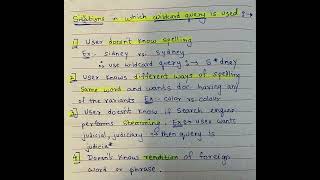 Situations in which wildcard query is used ? →
1) User doesnt know spelling
Ex:- sidney vs. Sydney
∴ use wildcard query :→ S*dney
2) User knows different ways of spelling
same word and wants doc having any
of the variants Ex:- color vs colour
3) User doesnt know if search engine
performs stemming. Ex:- User wants
judicial, judiciary ∴ then query is
judicia*
4) Doesnt knows rendition of foreign
word or phrase.